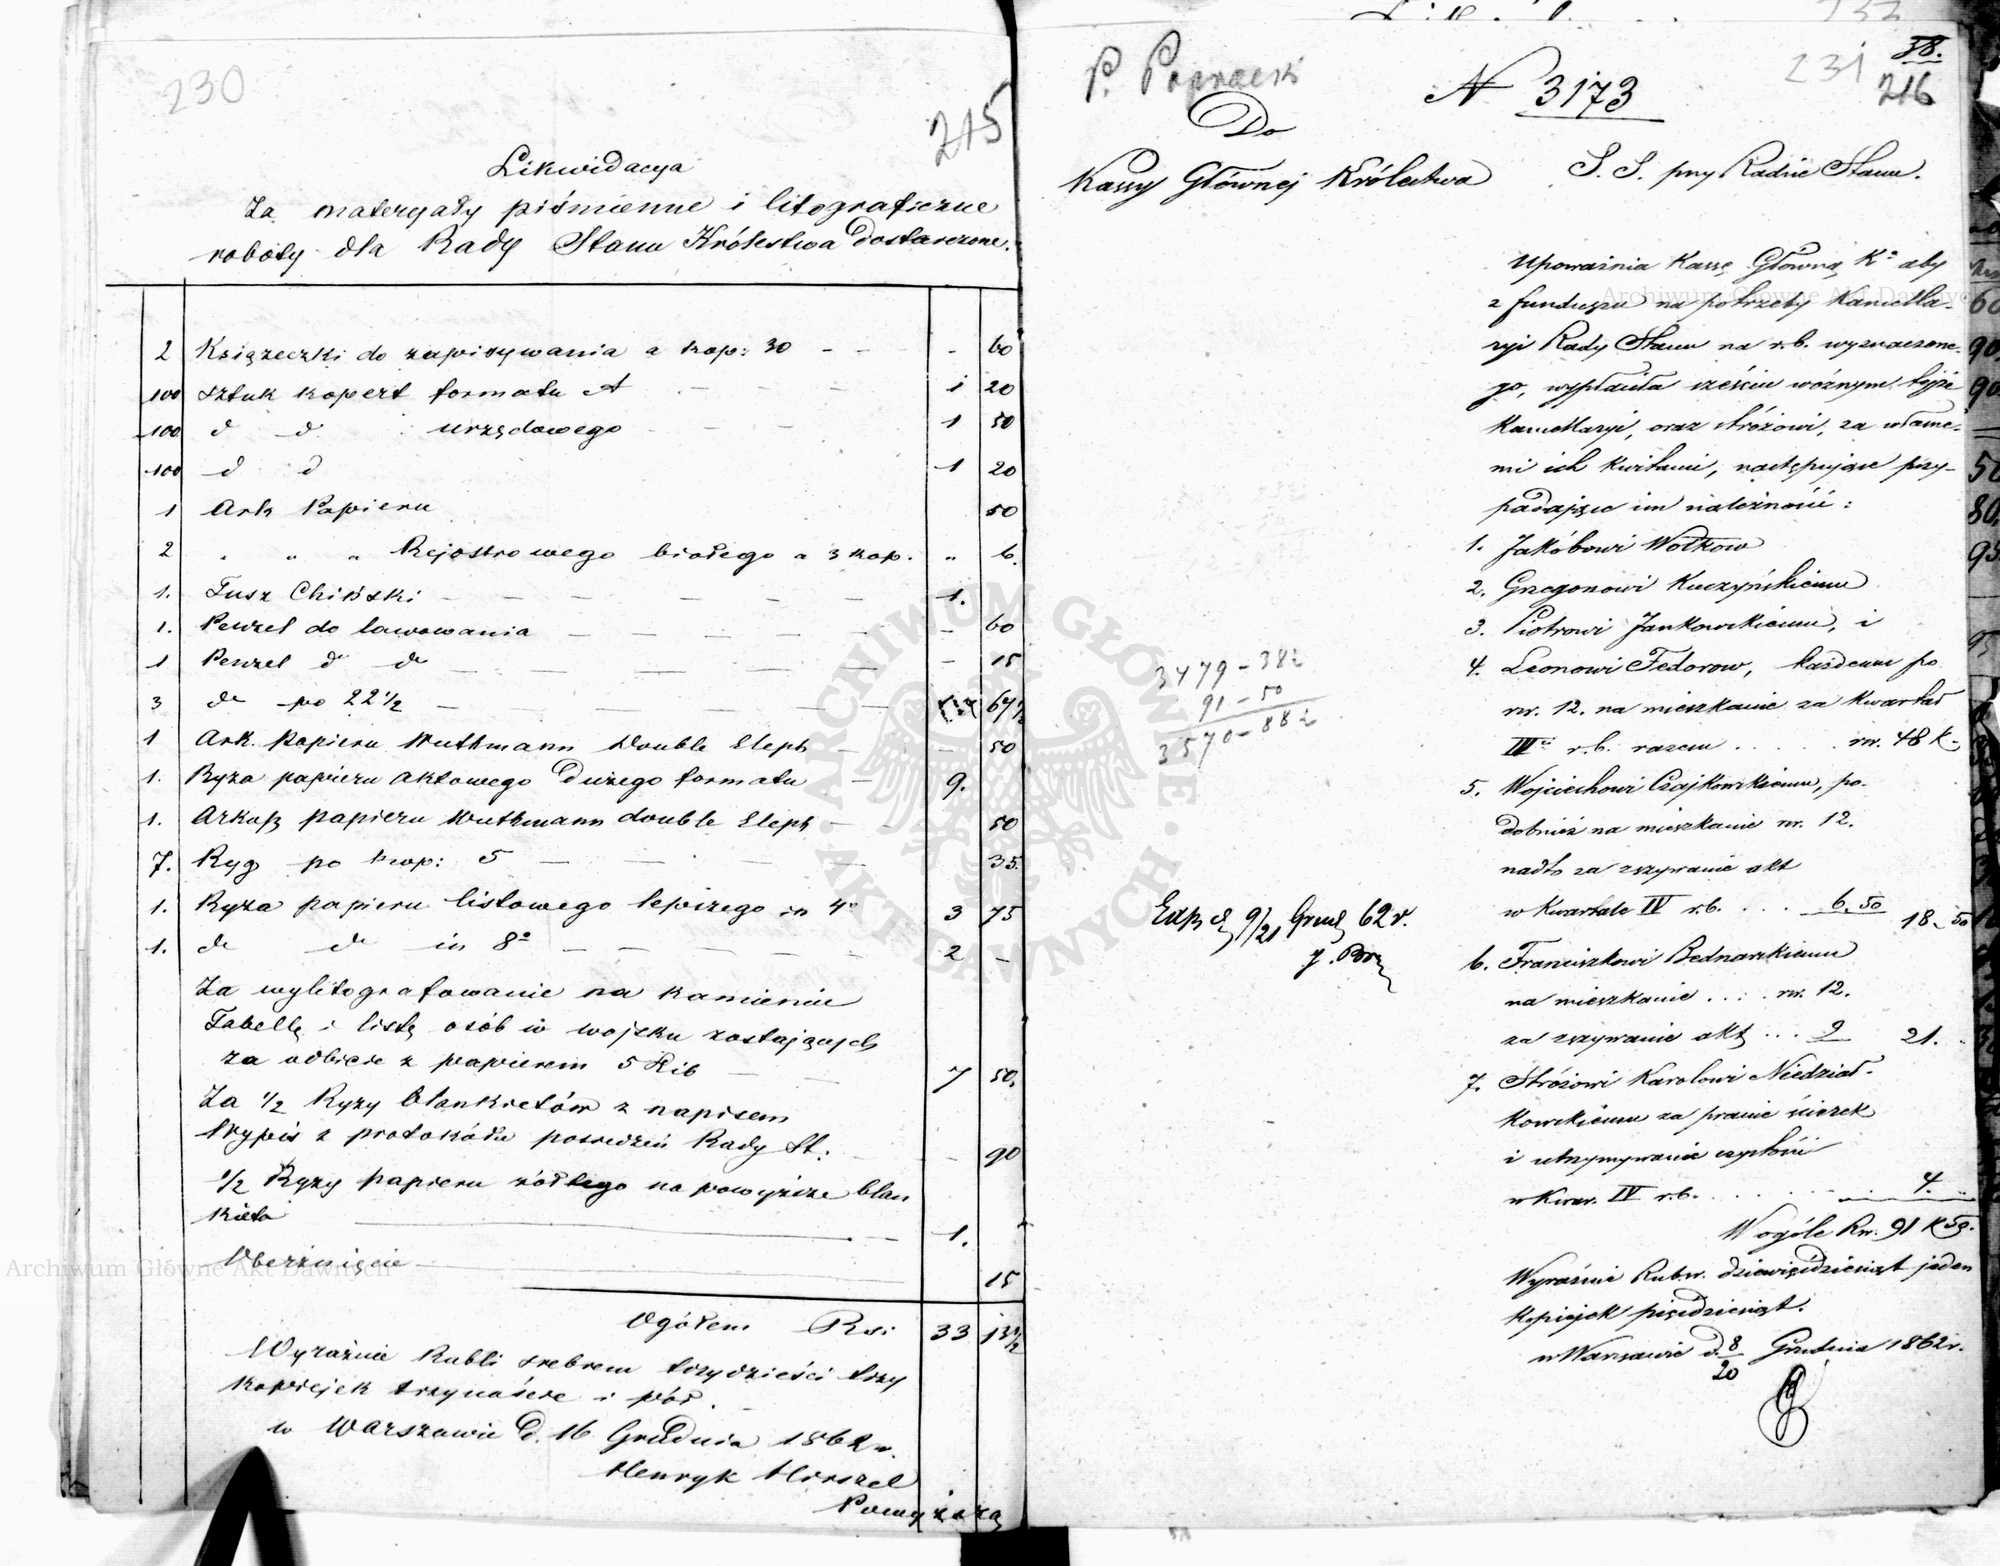 230
215
Likwidacya
Za materyały piśmienne i litograficzne
roboty dla Rady Stanu Królestwa dostarczone.
2 Książeczki do zapisywania a kop: 30 - - - 60
100 sztuk kopert formatu A - - - 1 20
100 d d urzędowego - - - 1 50
100 d d 1 20
1 Ark Papieru 50
2 " " " Rejestrowego białego a 3 kop. " 6.
1. Tusz Chiński - - - 1.
1. Penzel do lawowania - - - 60
1 Penzel do do - - - 15
3 do po 22 1/2 - - - 67 1/2
1 Ark. Papieru Wuthmann Double Eleph - - 50
1. Ryza papieru aktowego dużego formatu - 9.
1. Arkusz papieru Wuthmann double Eleph - - 50
7. Ryg po kop: 5 - - - 35.
1. Ryza papieru listowego lepszego in 4o 3 75
1. do do in 8o - - - 2 -
Za wylitografowanie na kamieniu
Tabellę i listę osób w wojsku zostających
za odbicie z papierem 5 Lib - - 7 50.
Za 1/2 Ryzy blankietów z napisem
Wypis z protokółu posiedzeń Rady St. - - 90
1/2 Ryzy papieru żółtego na powyższe blan
kieta - 1. -
Oberżnięcie - 15
Ogółem Rsr: 33 13 1/2
Wyraźnie Rubli srebrem trzydzieści trzy
kopiejek trzynaście i pół.
w Warszawie d. 16 Grudnia 1862 r.
Henryk Hirszel
Powyższą
231
38.
216
P. Popraeski
N 3173
Do
Kassy Głównej Królestwa
S. S. przy Radzie Stanu.
Upoważnia Kassę Główną Ka aby
z funduszu na potrzeby Kancella-
ryi Rady Stanu na r.b. wyznaczone-
go, wypłaciła sześciu woźnym tejże
Kancellaryi, oraz stróżowi, za własne-
mi ich kwitami, następujące przy-
padające im należności:
1. Jakóbowi Wołkow
2. Grzegorzowi Kuczyńskiemu
3. Piotrowi Jankowskiemu, i
4. Leonowi Fedorow, każdemu po
rsr. 12. na mieszkanie za kwartał
IVty r.b. razem . . . . . rsr. 48 k -
5. Wojciechowi Czajkowskiemu, po-
dobnież na mieszkanie rsr. 12.
nadto za zszywanie akt
w kwartale IV r.b. . . . 6. 50 18. 50
6. Franciszkowi Bednarskiemu
na mieszkanie . . . . rsr. 12.
za zszywanie akt . . . 9 21. -
7. Stróżowi Karolowi Niedział-
kowskiemu za pranie ścierek
i utrzymywanie czystości
w kwar. IV r.b. . . . . . 4. -
W ogóle Rsr. 91 k 50.
Wyraźnie Rub. sr. dziewięćdziesiąt jeden
kopiejek pięćdziesiąt.
w Warszawie d. 8/20 Grudnia 1862 r.
3479 - 38 2
91 - 50
3570 - 88 2
Exp d 9/21 Grud 62 r.
ARCHIWUM GŁÓWNE AKT DAWNYCH
Archiwum Główne Akt Dawnych
Archiwum Główne Akt Dawnych
60
90
90
50
80
95